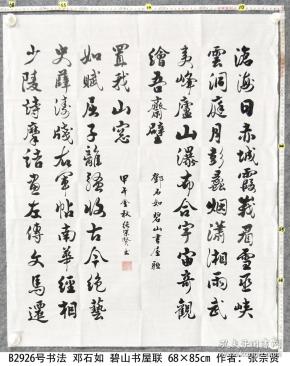 滄海日赤城霞峩眉雪巫峡
雲洞庭月彭蠡烟瀟湘雨武
夷峰廬山瀑布合宇宙奇觀
繪吾齋壁
鄧石如碧山書屋聯
少陵詩摩詰畫左傳文馬遷
史薛濤牋右軍帖南華經相
如賦屈子離騷收古今絶藝
置我山窓
甲午金秋張宗賢書
B2926号书法 邓石如 碧山书屋联 68×85cm 作者：张宗贤